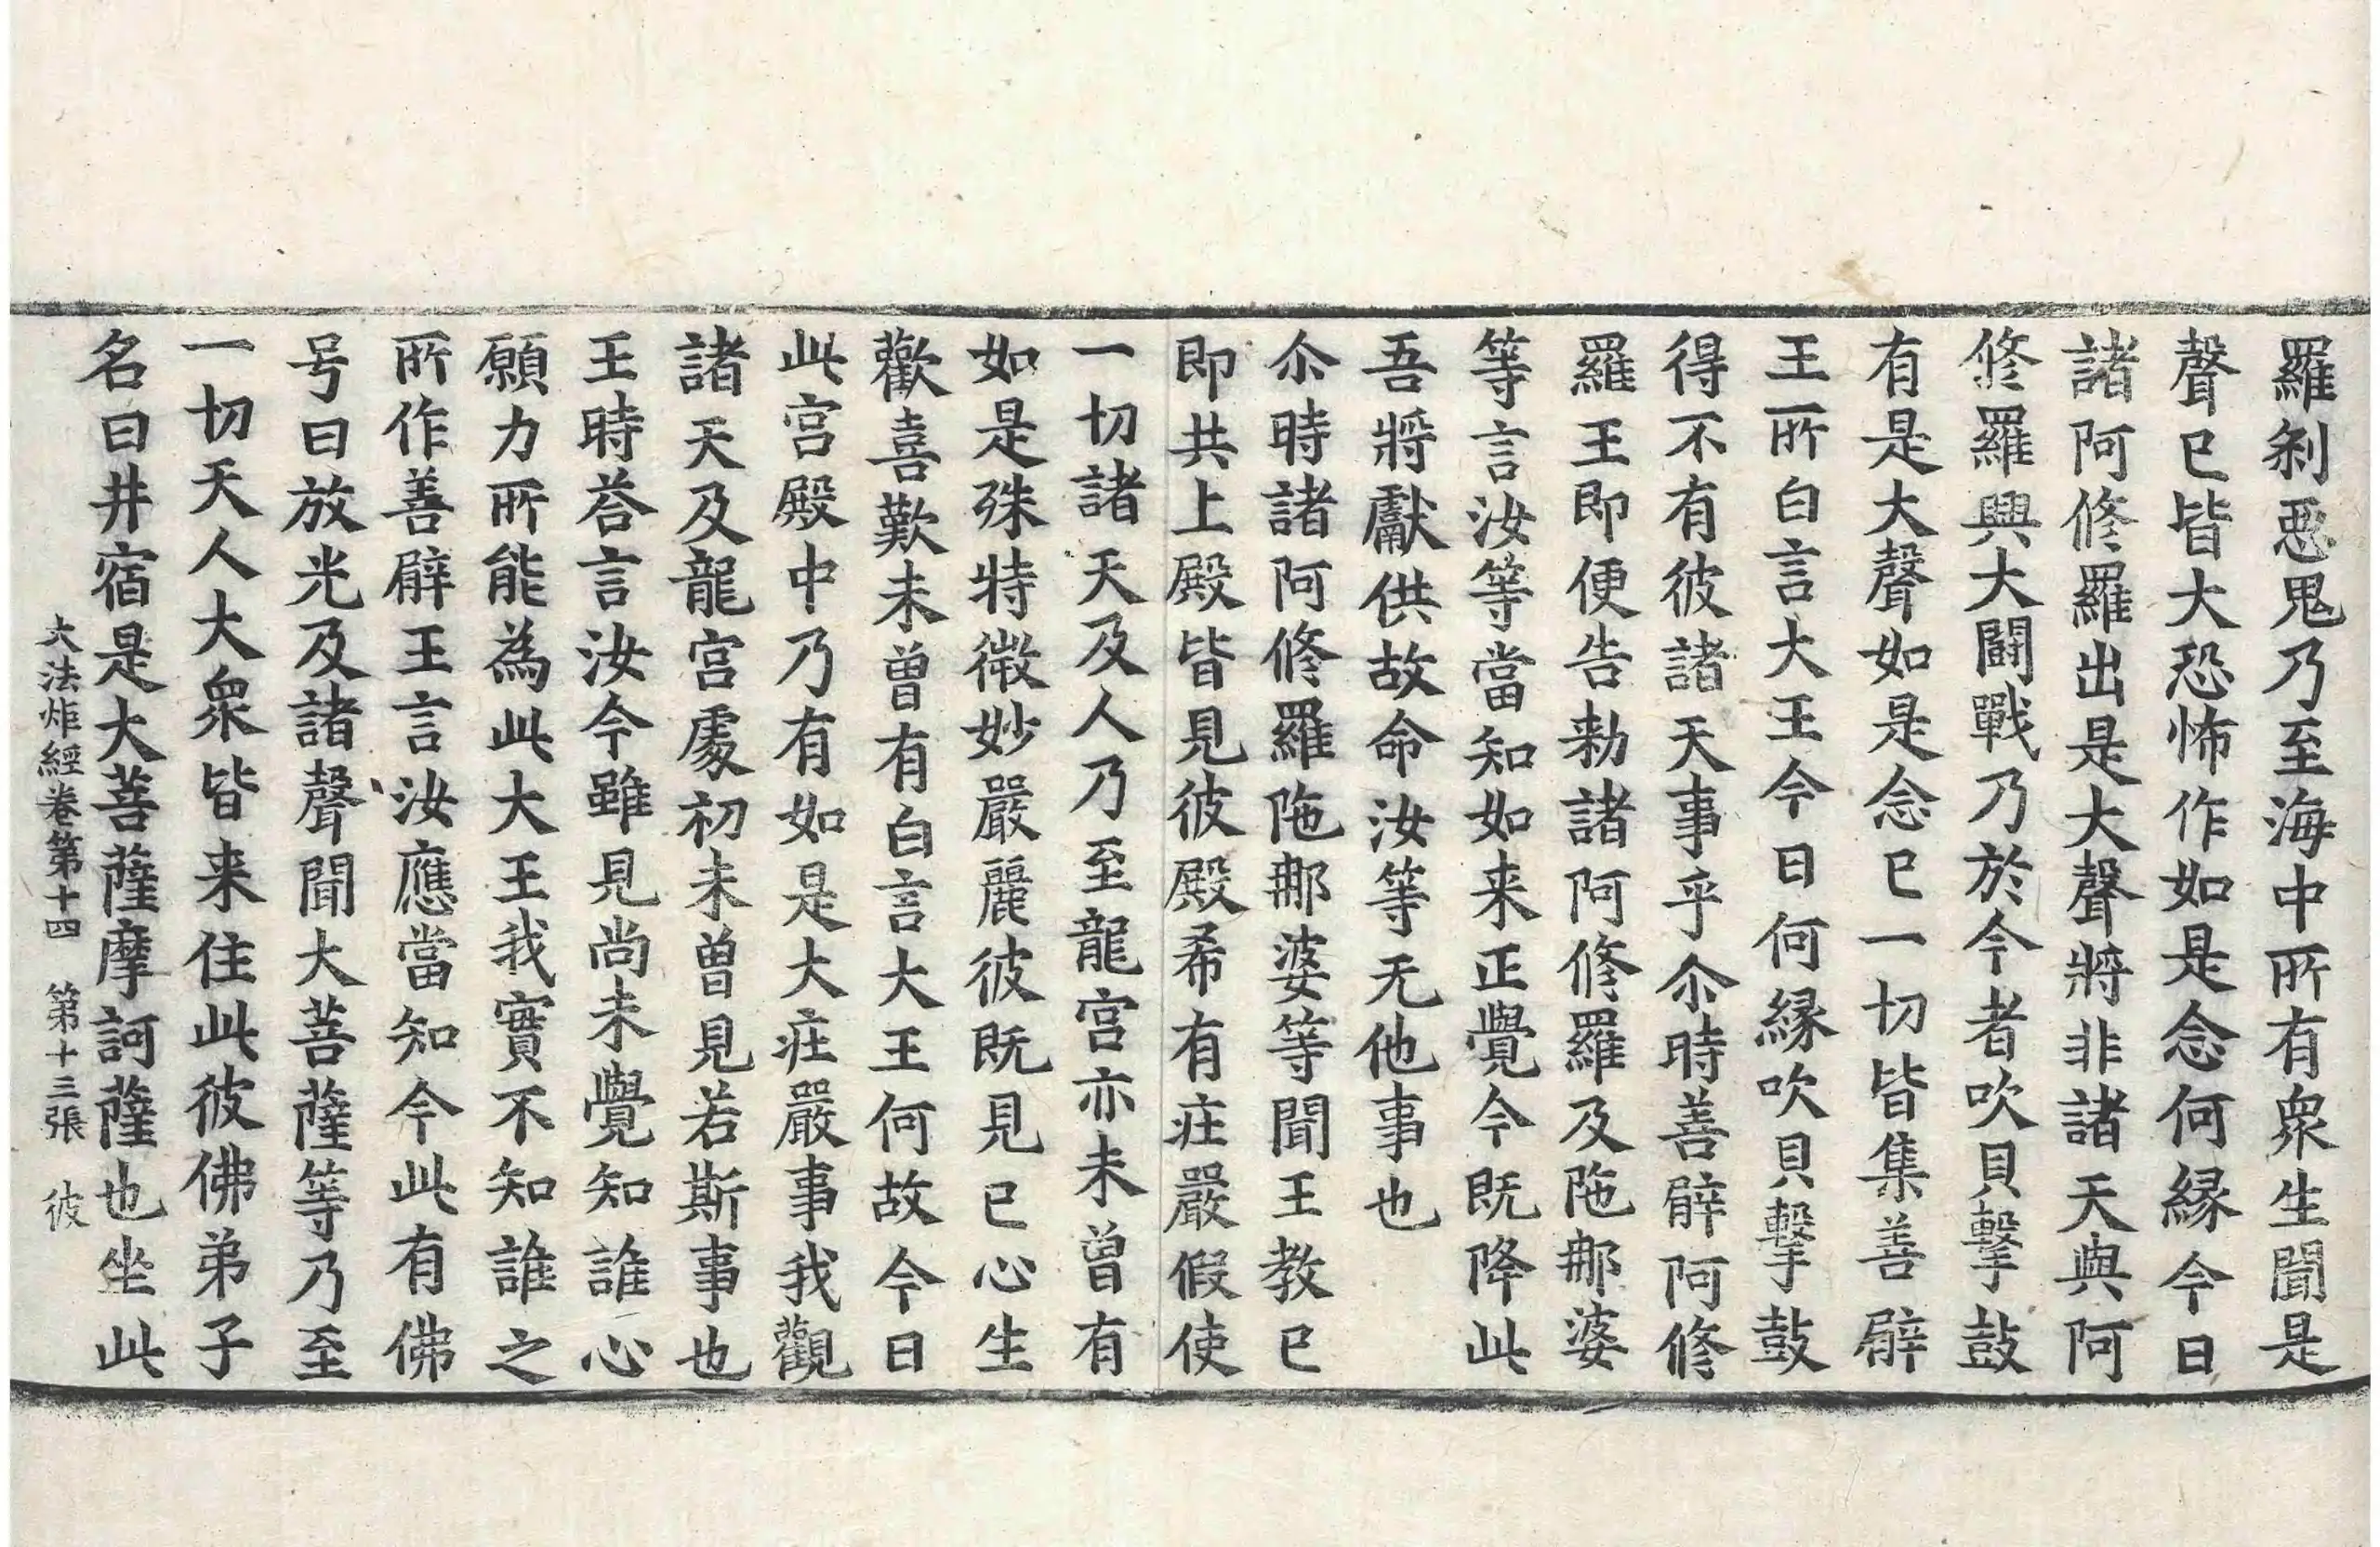 羅刹惡鬼乃至海中所有衆生聞是
聲已皆大恐怖作如是念何縁今日
諸阿修羅出是大聲將非諸天與阿
修羅興大鬪戰乃於今者吹貝擊鼓
有是大聲如是念已一切皆集善臂
王所白言大王今日何縁吹貝擊鼓
得不有彼諸天事乎尒時善臂阿修
羅王即便告勑諸阿修羅及陁那婆
等言汝等當知如来正覺今既降此
吾將獻供故命汝等无他事也
尒時諸阿修羅陁那婆等聞王教已
即共上殿皆見彼殿希有庄嚴假使
一切諸天及人乃至龍宮亦未曽有
如是殊特微妙嚴麗彼既見已心生
歡喜歎未曽有白言大王何故今日
此宮殿中乃有如是大庄嚴事我觀
諸天及龍宮處初未曽見若斯事也
王時荅言汝今雖見尚未覺知誰心
願力所能為此大王我實不知誰之
所作善臂王言汝應當知今此有佛
号曰放光及諸聲聞大菩薩等乃至
一切天人大衆皆来住此彼佛弟子
名曰井宿是大菩薩摩訶薩也坐此
大法炬經卷第十四　第十三張　彼